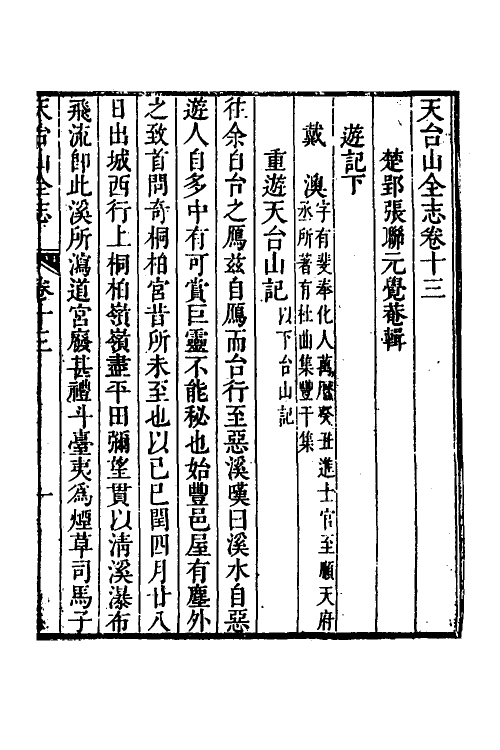 天台山全志卷十三
楚郢張聯元覺菴輯
遊記下
戴澳字有斐奉化人萬曆癸丑進士官至順天府
丞所著有杜曲集豐干集
重遊天台山記以下台山記
往余自台之鴈茲自鴈而台行至惡溪嘆曰溪水自惡
遊人自多中有可賞巨靈不能秘也始豐邑屋有塵外
之致首問奇桐柏宮昔所未至也以己巳閏四月廿八
日出城西行上桐柏嶺嶺盡平田彌望貫以清溪瀑布
飛流即此溪所瀉道宮廢甚禮斗臺夷為煙草司馬子
天台山全志
卷十三
一